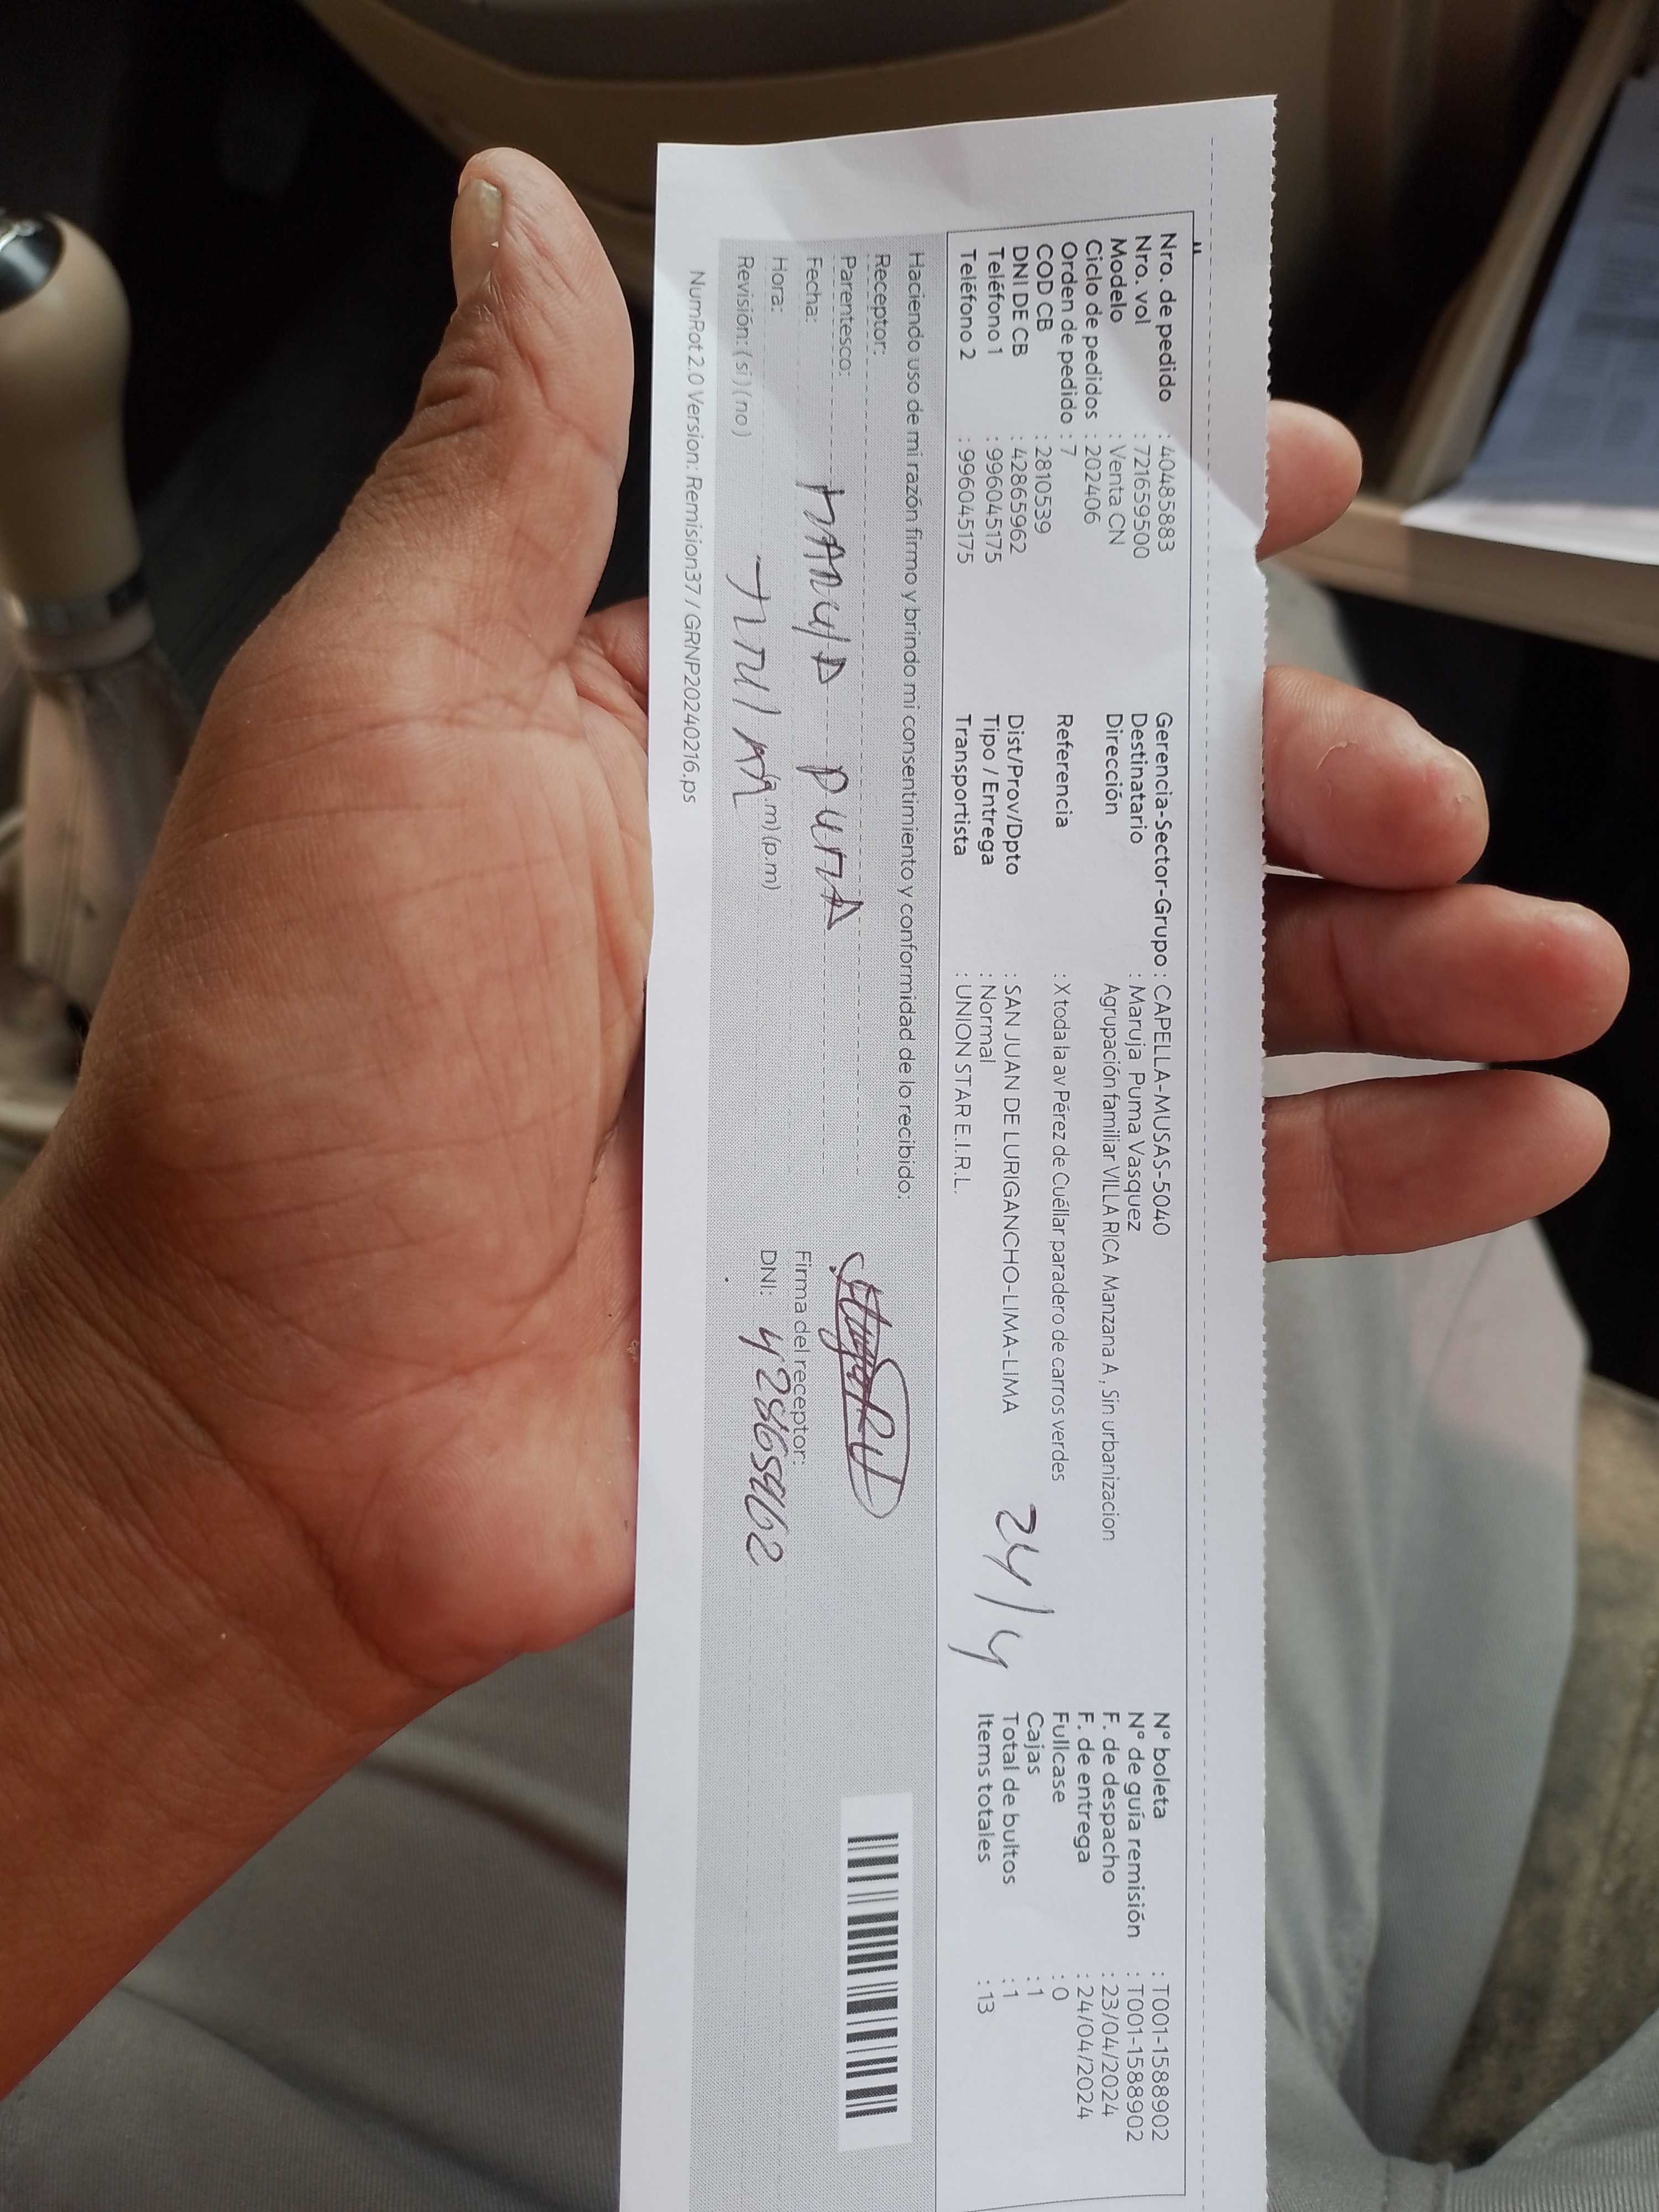 Nro. de pedido : 40485883
Nro. vol : 721659500
Modelo : Venta CN
Ciclo de pedidos : 202406
Orden de pedido : 7
COD CB : 2810539
DNI DE CB : 42865962
Teléfono 1 : 996045175
Teléfono 2 : 996045175
Gerencia-Sector-Grupo : CAPELLA-MUSAS-5040
Destinatario : Maruja Puma Vasquez
Dirección Agrupación familiar VILLA RICA Manzana A , Sin urbanizacion
Referencia : X toda la av Pérez de Cuéllar paradero de carros verdes
Dist/Prov/Dpto : SAN JUAN DE LURIGANCHO-LIMA-LIMA
Tipo / Entrega : Normal
Transportista : UNION STAR E.I.R.L.
24/4
N° boleta : T001-1588902
N° de guía remisión : T001-1588902
F. de despacho : 23/04/2024
F. de entrega : 24/04/2024
Fullcase : 0
Cajas : 1
Total de bultos : 1
Items totales : 13
Haciendo uso de mi razón firmo y brindo mi consentimiento y conformidad de lo recibido:
Receptor:
Parentesco:
Fecha:
Hora: (a.m) (p.m)
Revisión: ( si ) ( no )
Firma del receptor:
DNI: 42865962
NumRot 2.0 Version: Remision37 / GRNP20240216.ps